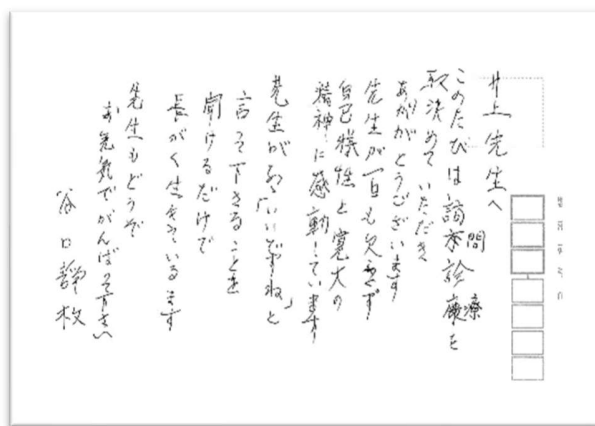 井上先生へ
このたびは訪問診療を
取決めていただき
ありがとうございます
先生が一日も欠かさず
自己犠牲と寛大の
精神に感動しています
先生が「いいですね」と
言って下さることを
聞けるだけで
長がく生きているます
先生もどうぞ
お元気でがんばって下さい
谷口静枝